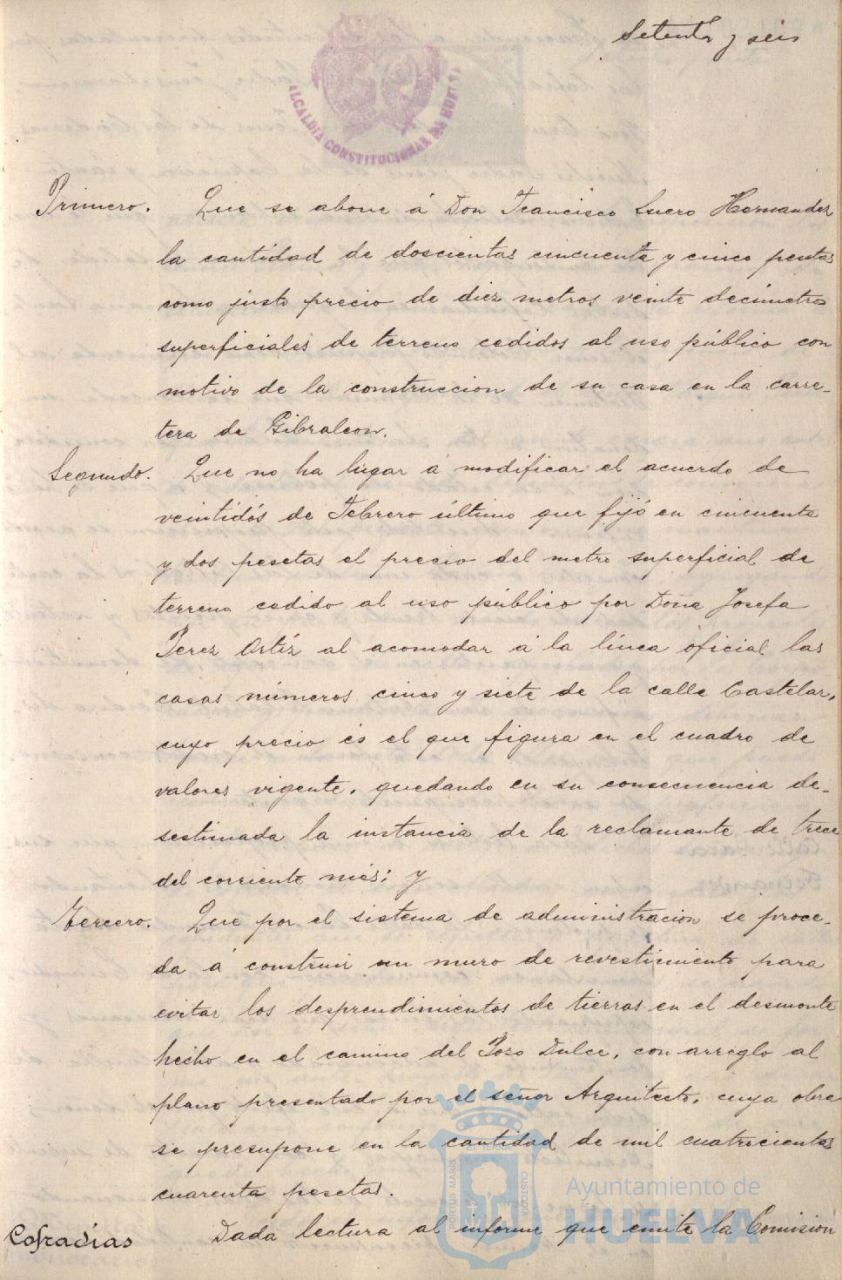 Setenta y seis
ALCALDIA CONSTITUCIONAL DE HUELVA
Primero. Que se abone á Don Francisco Suero Hernandez
la cantidad de doscientas cincuenta y cinco pesetas
como justo precio de diez metros veinte decimetros
superficiales de terreno cedidos al uso público con
motivo de la construccion de su casa en la carre-
tera de Gibraleon.
Segundo. Que no ha lugar á modificar el acuerdo de
veintidós de Febrero último que fijó en cincuenta
y dos pesetas el precio del metro superficial de
terreno cedido al uso público por Doña Josefa
Perez Ortíz al acomodar á la línea oficial las
casas números cinco y siete de la calle Castelar,
cuyo precio és el que figura en el cuadro de
valores vigente, quedando en su consecuencia de-
sestimada la instancia de la reclamante de trece
del corriente més; y
Tercero. Que por el sistema de administracion se proce-
da á construir un muro de revestimiento para
evitar los desprendimientos de tierras en el desmonte
hecho en el camino del Pozo Dulce, con arreglo al
plano presentado por el señor Arquitecto, cuya obra
se presupone en la cantidad de mil cuatrocientas
cuarenta pesetas.
Cofradías Dada lectura al informe que emite la Comisión
PORTUS MARIS ET TERRAE CUSTODIA
Ayuntamiento de
HUELVA